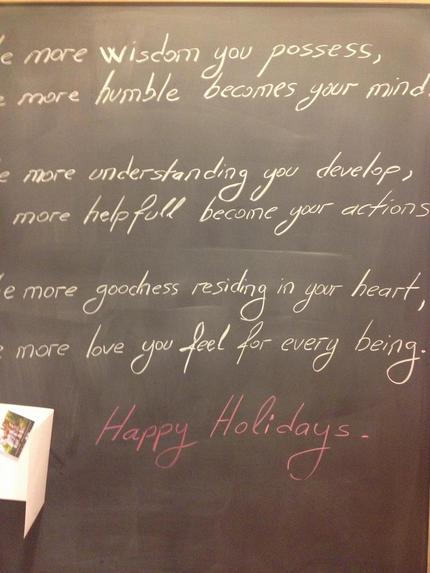 e more wisdom you possess,
e more humble becomes your mind.
e more understanding you develop,
more helpfull become your actions
e more goodness residing in your heart,
e more love you feel for every being.
Happy Holidays.